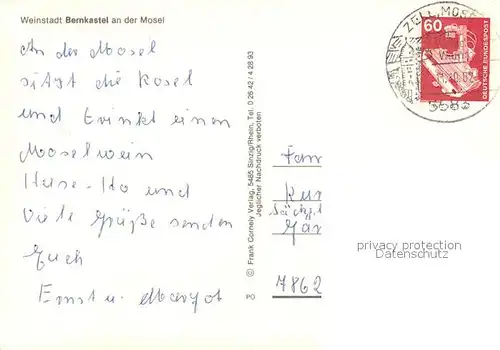 Weinstadt Bernkastel an der Mosel
An der Mosel
sitzt die Rosel
und trinkt einen
Moselwein
und
Viele Grüße senden
Euch
Ernst u. Margot
© Frank Cornely Verlag, 5485 Sinzig/Rhein, Tel. 0 26 42 / 4 28 93
Jeglicher Nachdruck verboten
PO
60
DEUTSCHE BUNDESPOST
ZELL, MOSEL
5583
Fam
Kur
Gär
7862
privacy protection
Datenschutz